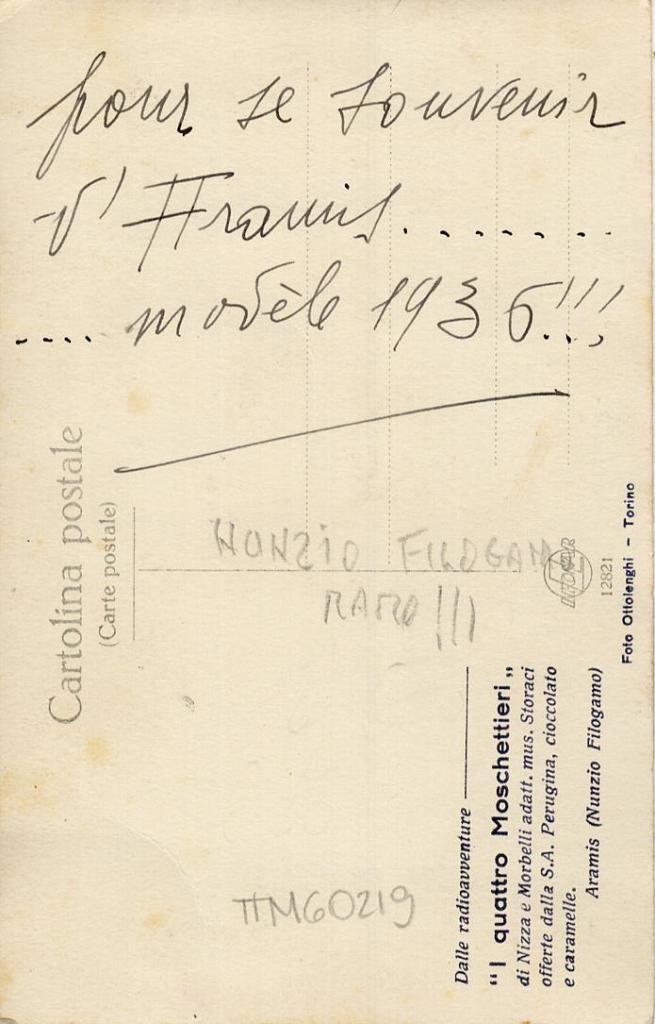 pour se souvenir
d'Aramis.......
.... modèle 1936!!!
Cartolina postale
(Carte postale)
NUNZIO FILOGAMO
RARO!!!
12821
Foto Ottolenghi - Torino
Dalle radioavventure
"I quattro Moschettieri„
di Nizza e Morbelli adatt. mus. Storaci
offerte dalla S.A. Perugina, cioccolato
e caramelle.
Aramis (Nunzio Filogamo)
TTM60219